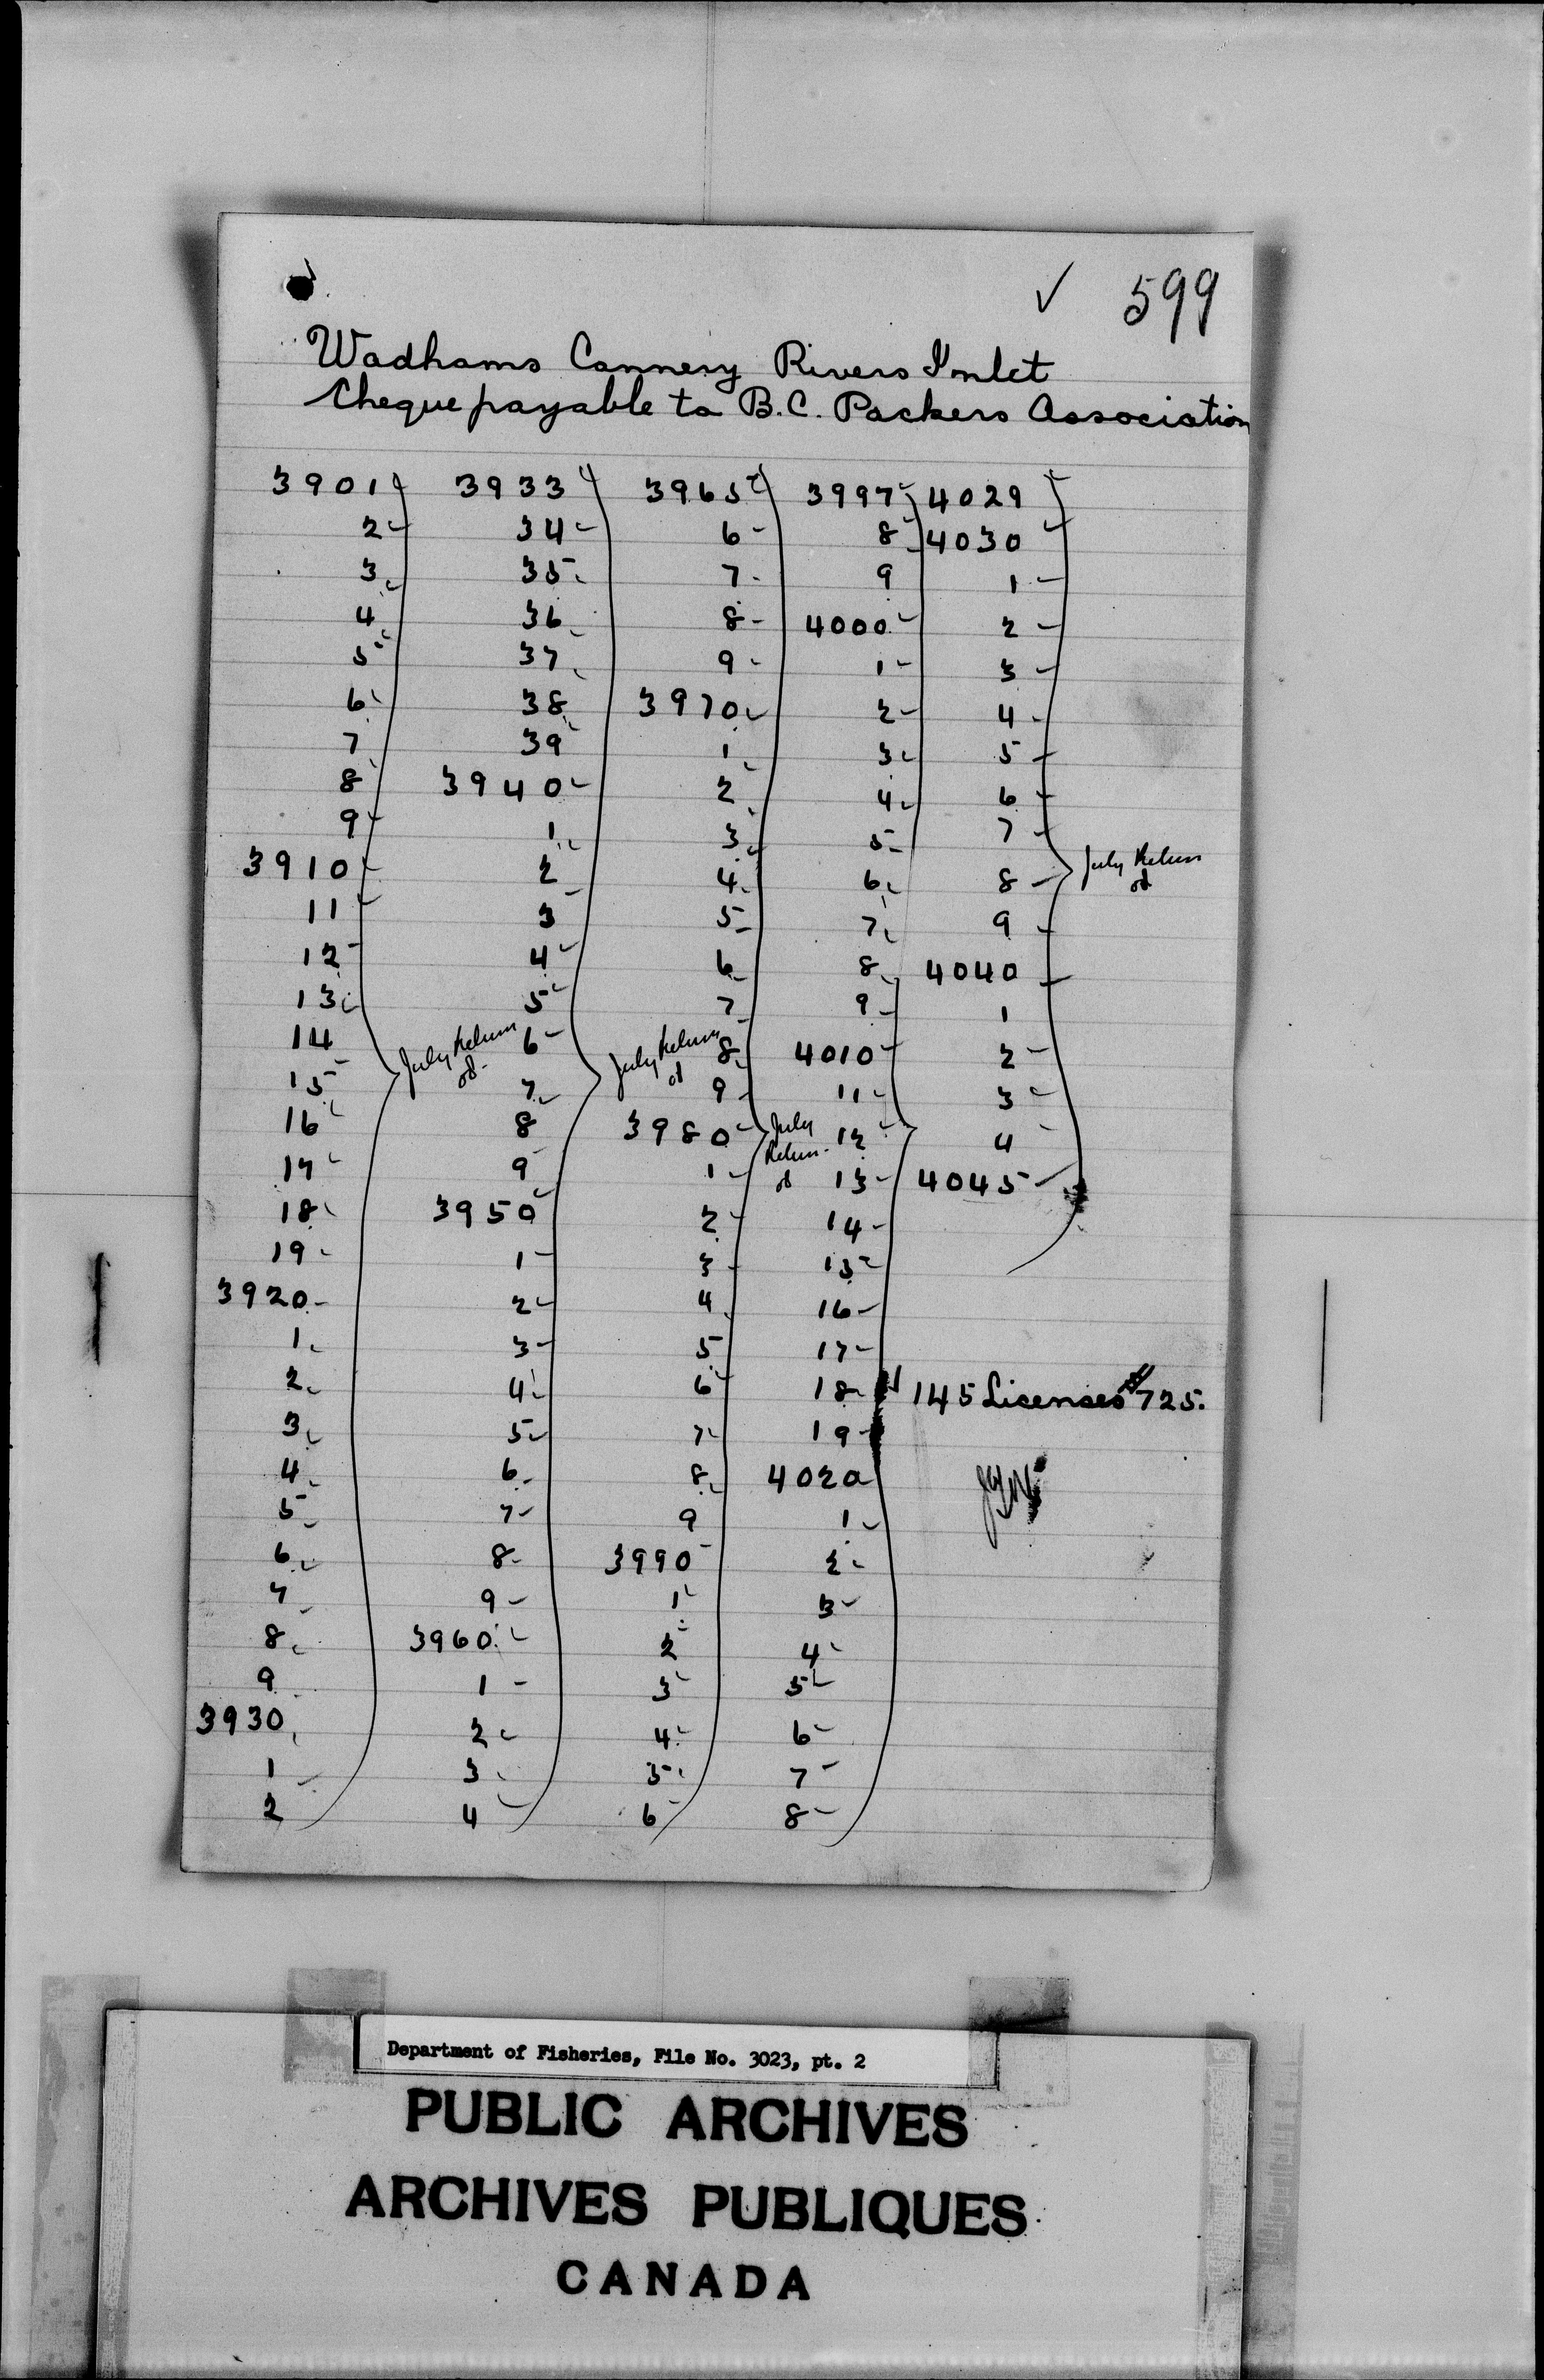 ✓ 599
Wadhams Cannery Rivers Inlet
Cheque payable to B.C. Packers Association
3901 3933 3965 3997 4029
2 34 6 8 4030
3 35 7 9 1
4 36 8 4000 2
5 37 9 1 3
6 38 3970 2 4
7 39 1 3 5
8 3940 2 4 6
9 1 3 5 7
3910 2 4 6 8 July Return
11 3 5 7 9
12 4 6 8 4040
13 5 7 9 1
14 July Return 6 July Return 8 4010 2
15 7 9 11 3
16 8 3980 July 12 4
17 9 1 Return 13 4045
18 3950 2 14
19 1 3 15
3920 2 4 16
1 3 5 17
2 4 6 18 145 Licenses $725.
3 5 7 19
4 6 8 4020
5 7 9 1
6 8 3990 2
7 9 1 3
8 3960 2 4
9 1 3 5
3930 2 4 6
1 3 5 7
2 4 6 8
Department of Fisheries, File No. 3023, pt. 2
PUBLIC ARCHIVES
ARCHIVES PUBLIQUES
CANADA